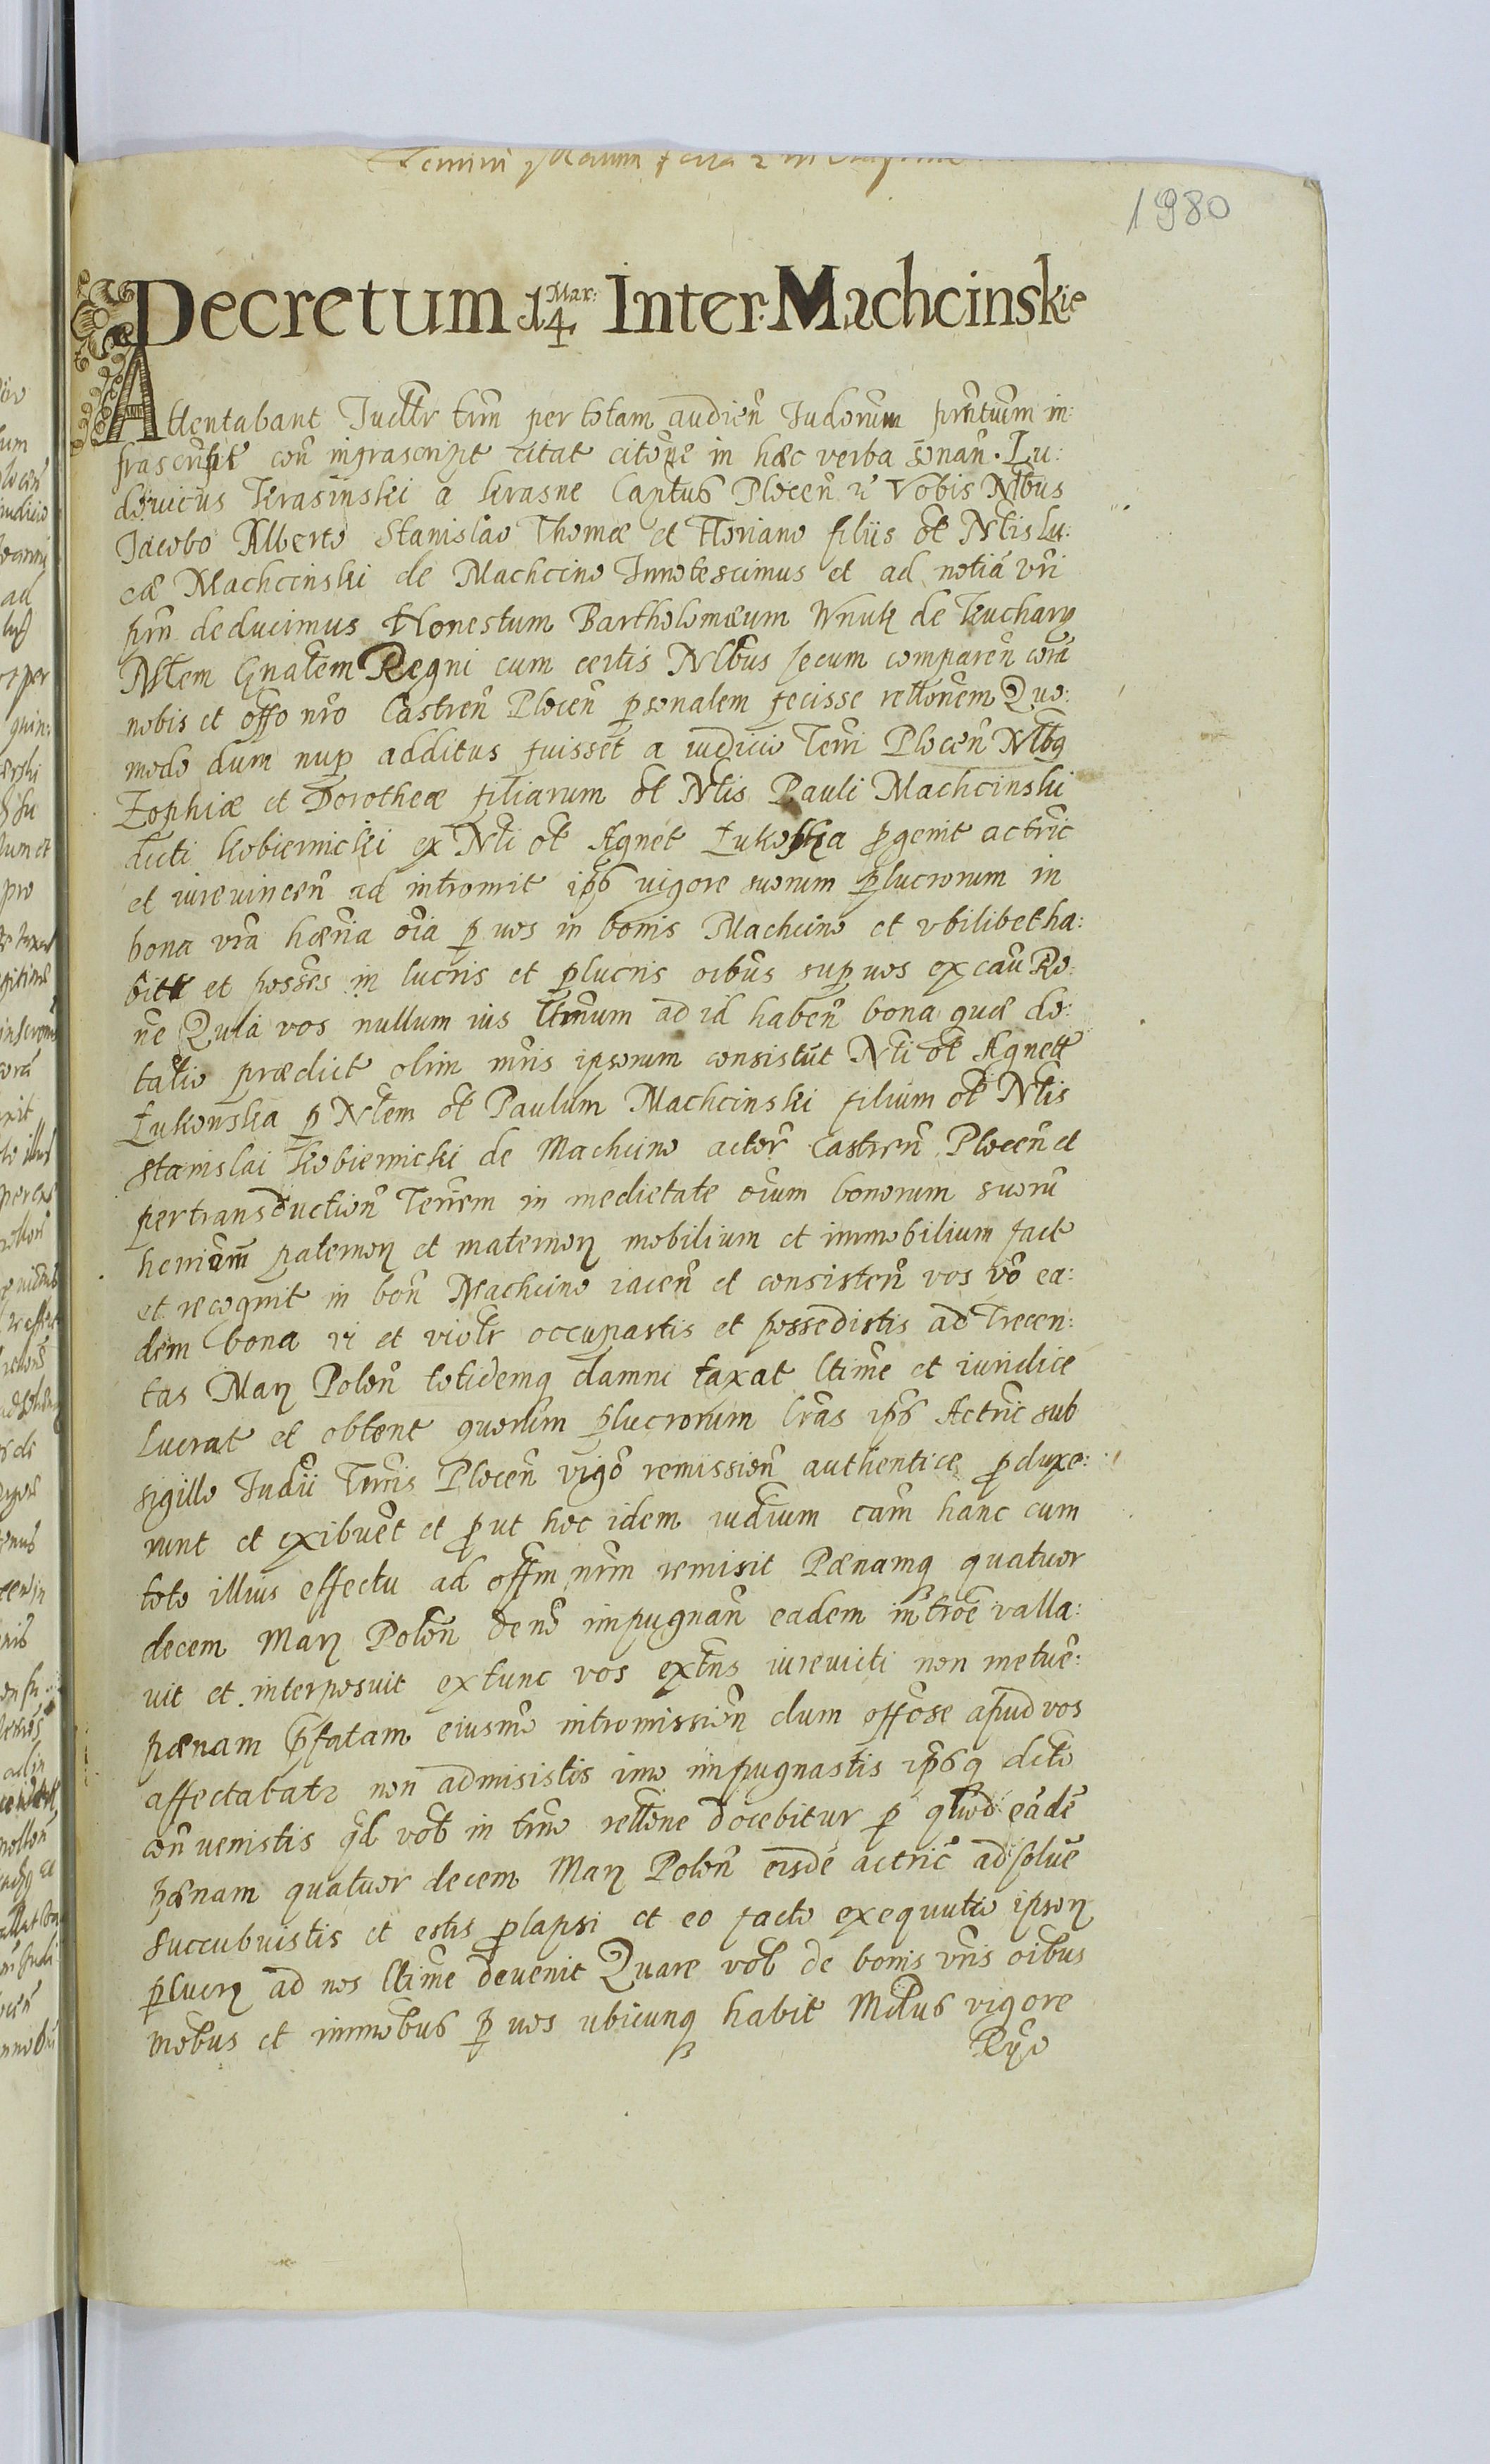 1980
Decretum 14 Mar: Inter: Machcinskie
Attentabant Judltr trm per totam audien̄ Judorum pn̄tium in:
frascript con̄ infrascript citat citōne in hæc verba sonan̄. Lu:
dovicus Krasinski a Krasne Captus Plocen̄ Vobis Nlbus
Jacobo Alberto Stanislao Thomæ et Floriano filiis ol Nlis Lu:
cæ Machcinski de Machcino Innotescimus et ad notiā vri
prn̄ deducimus Honestum Bartholomæum Wnuk de Kuchary
Mlem Gnalem Regni cum certis Nlbus secum comparen̄ corā
nobis et offo nr̄o Castren̄ Plocen̄ psonalem fecisse rellonem Quo:
modo dum nup additus fuisset a iudicio Terri Plocen̄ Nlbq
Zophiæ et Dorotheæ filiarum ol Nlis Pauli Machcinski
dicti Kobiernicki ex Nli ol Agnet Lukoska pgenit actric
et iurevincen̄ ad intromit ips vigore suorum plucrorum in
bona vr̄a hæria oīa p vos in bonis Machcino et vbilibet ha:
bit et posses in lucris et plucris oibus sup vos ex cau Ro:
ne Quia vos nullum ius ltimum ad id haben̄ bona quæ do:
talio prædict olim mr̄is ipsorum consistut Nli ol Agnett
Lukowska p Nlem ol Paulum Machcinski filium ol Nlis
Stanislai Kobiernicki de Machcino actor̄ Castren̄ Plocen̄ et
pertransductiōn Terrem in medietate oīum bonorum suorū
heriōrm paternoꝝ et maternoꝝ mobilium et immobilium fact
et recognit in bon̄ Machcino iacen̄ et consisten̄ vos vō ea:
dem bona vi et violtr occupastis et possedistis ad Trecen:
tas Marꝝ Polon̄ totidemq damni taxat ltime et iuridice
Lucrat et obtent quorum plucrorum lr̄as ips Actric sub
sigillo Judii Terris Plocen̄ vigō remissiōn authentice pduxe:
runt et exibuēt et put hoc idem iudium cām hanc cum
toto illius effectu ad offm nr̄m remisit Pænamq quatuor
decem Marꝝ Polon̄ de nō impugnan̄ eadem intrōe valla:
uit et interposuit extunc vos extns iurevicti non metuē:
pænam pfatam eiusmō intromissiōn dum offōse apud vos
affectabatr non admisistis imo impugnastis ipsq dcto
con̄venistis qd vob in trm̄o rellōne docebitur p quod eādē
pænam quatuor decem Marꝝ Polon̄ eisdē actric adsoluē
succubuistis et estis plapsi et eo facto exequutio ipsoꝝ
plucrꝝ ad nos ltime devenit Quare vob de bonis vr̄is oibus
mobus et immobus p vos ubicunq habit Mdus vigore